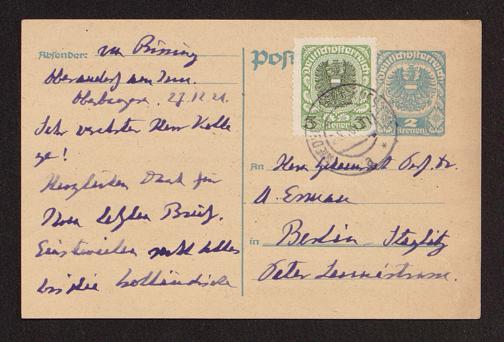 Absender: von Bissing
Oberaudorf am Inn.
Oberbayern. 27.12.21.
Sehr verehrter Herr Kolle
ge!
Herzlichen Dank für
Ihren letzten Brief.
Einstweilen
die holländische
Post
Deutschösterreich
5 5
Kronen
Deutschösterreich
2
Kronen
An Herrn Geheimrat Prof. Dr.
A. Erman
in Berlin-Steglitz
Peter Lennéstrasse.